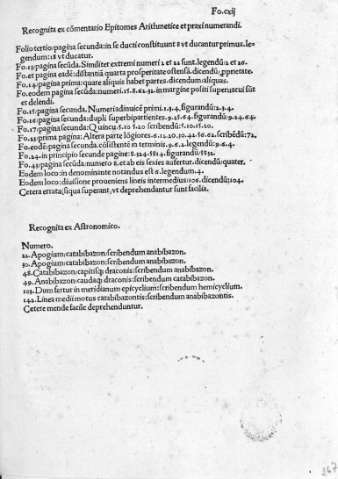 Fo.cxij
Recognita ex cõmentario Epitomes Arithmetice et praxi numerandi.
Folio tertio: pagina secunda: in se ducti constituunt 8 vt ducantur primus. le-
gendum: 18 vt ducatur.
Fo. 13. pagina secũda. Similiter extremi numeri 2 et 22 sunt. legendũ 2 et 26.
Fo. et pagina eadẽ: distantiã quarta prosperitate ostensã. dicendũ, pprietate.
Fo. 14. pagina prima: quare aliquis habet partes. dicendum aliquas.
Fo. eodem pagina secũda: numeri in margine positi superuacui sũt
et delendi.
Fo. 15. pagina secunda. Numeri adinuicẽ primi. figurandũ: 2.3.4.
Fo. 16 pagina secunda: dupli superbipartientes. figurandũ:
Fo. 17. pagina secũda: Quincu. 5.10.20. scribendũ: 5.10.15.20.
pagina: Altera parte lõgiores scribẽdũ: 72.
Fo. eodẽ: pagina secunda. cõsistente in terminis. 9.6.2. legendũ: 9.6.4.
Fo. 24. in principio secunde pagine: figurandũ:
pagina secũda: numero 8. et ab eis sexies aufertur. dicendũ: quater.
Eodem loco: in denominante notandus est 6. legendum. 4.
Eodem loco: diuisione proueniens linets intermedius: 106. dicendũ: 104.
Cetera errata (siqua superant, vt deprehendantur sunt facilia.
Recognita ex Astronomico.
Numero.
22. Apogium: catabibazon: scribendum anabibazon.
Apogium: catabibazon: scribendum anabibazon.
48. Catabibazon: capitisq; draconis: scribendum anabibazon.
49. Anabibazon: caudaq; draconis: scribendum catabibazon.
Dum fertur in meridianum epicyclium: scribendum hemicyclium.
Linea medii motus catabibazontis: scribendum anabibazontis.
Cetere mende facile deprehenduntur.
267